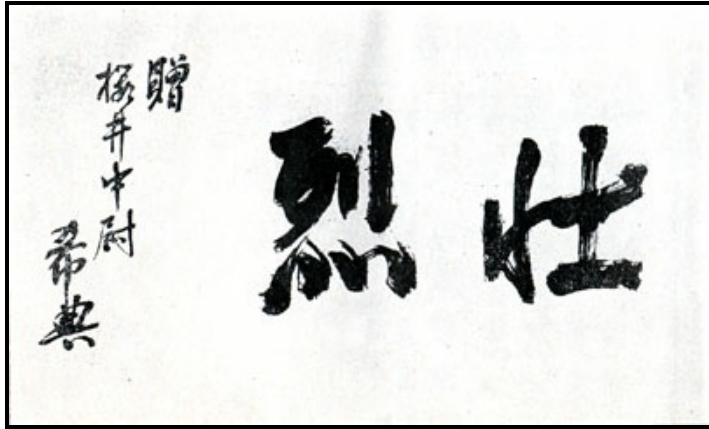 壮烈
贈
櫻井中尉
希典